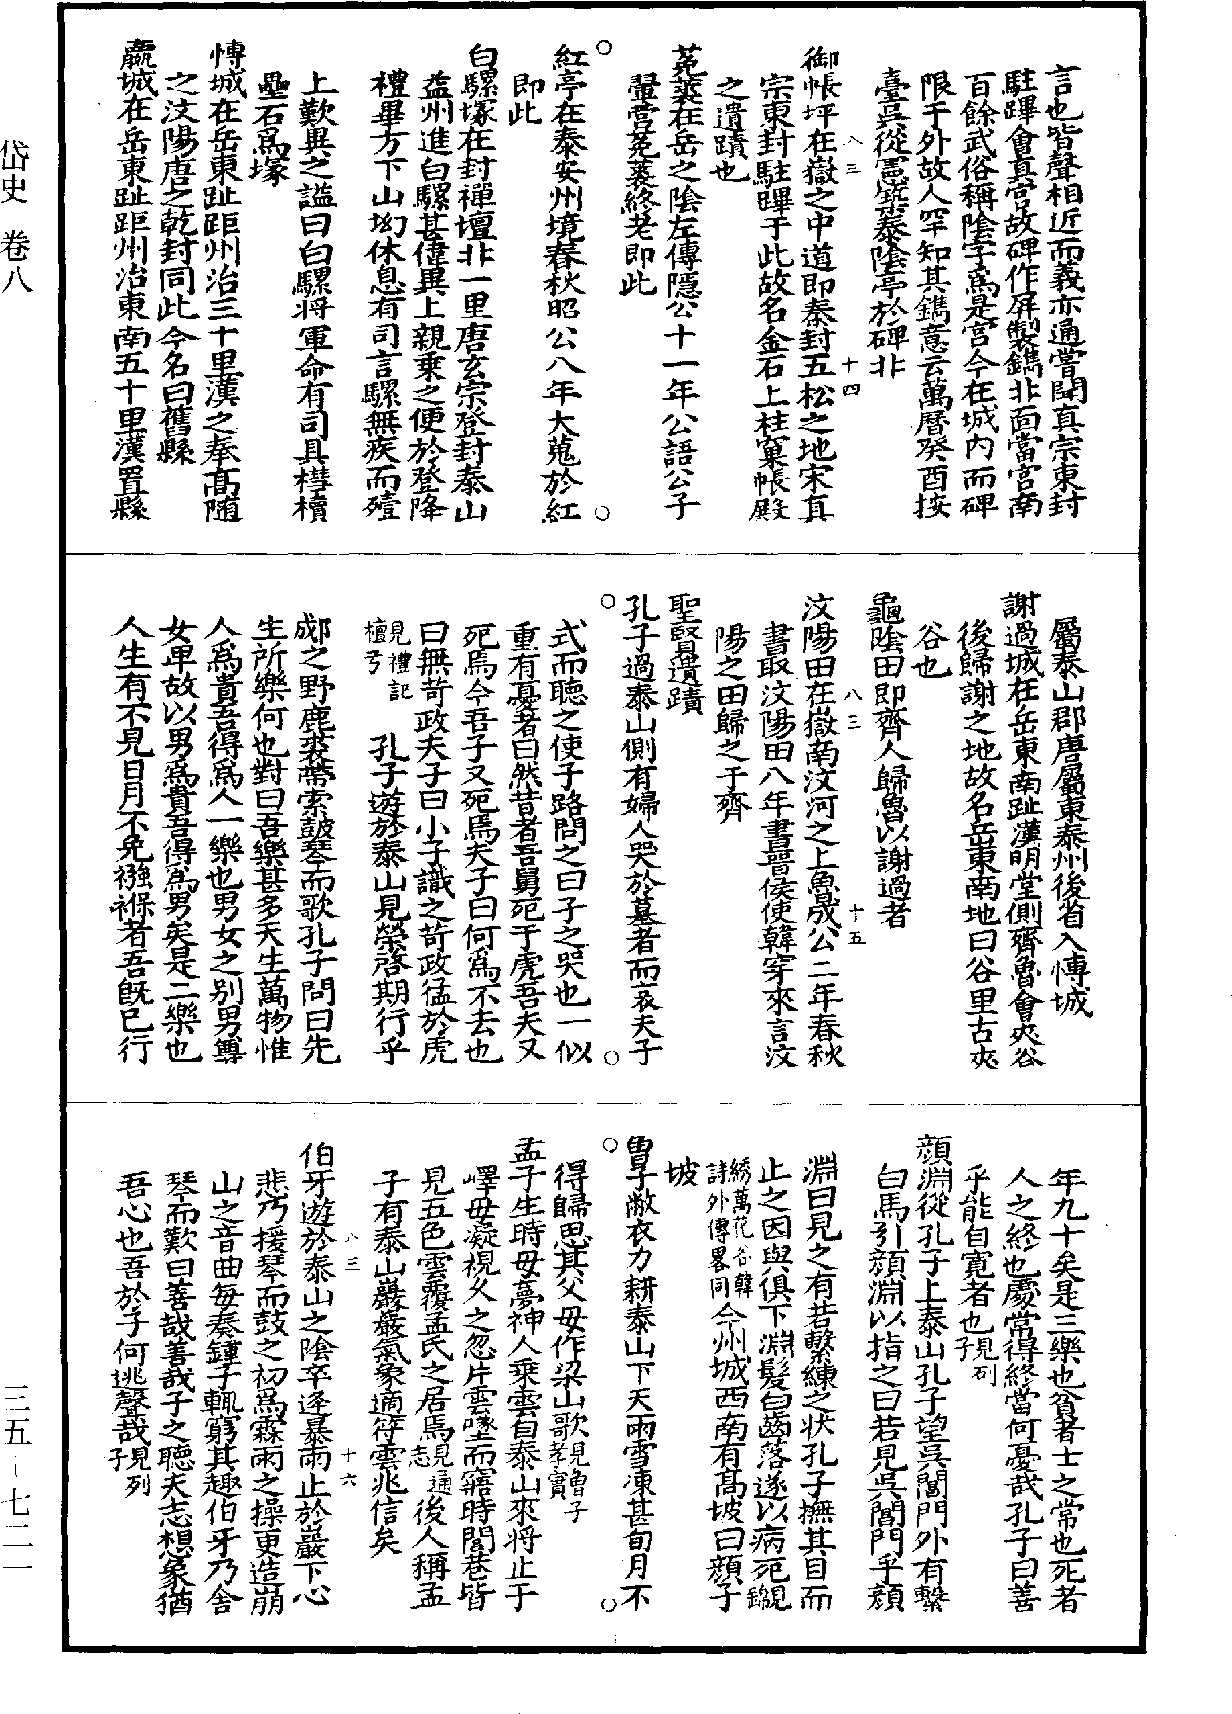 岱史 卷八
言也皆聲相近而義亦通嘗聞真宗東封
駐蹕會真宮故碑作屏製鐫北面當宮南
百餘武俗稱陰字爲是宮今在城內而碑
限于外故人罕知其鐫意云萬曆癸酉按
臺吳從憲築泰陰亭於碑北
八三 十四
御帳坪在嶽之中道即秦封五松之地宋真
宗東封駐蹕于此故名金石上柱窠帳殿
之遺蹟也
菟裘在岳之陰左傳隱公十一年公語公子
翬營菟裘終老即此
紅亭在泰安州境春秋昭公八年大蒐於紅
即此
白騾塚在封禪壇北一里唐玄宗登封泰山
益州進白騾甚偉異上親乗之便於登降
禮畢方下山坳休息有司言騾無疾而殪
上歎異之諡曰白騾將軍命有司具槥櫝
壘石爲塚
博城在岳東趾距州治三十里漢之奉高隨
之汶陽唐之乾封同此今名曰舊縣
嬴城在岳東趾距州治東南五十里漢置縣
屬泰山郡唐屬東泰州後省入博城
謝過城在岳東南趾漢明堂側齊魯會夾谷
後歸謝之地故名岳東南地曰谷里古夾
谷也
龜陰田即齊人歸魯以謝過者
八三 十五
汶陽田在嶽南汶河之上魯成公二年春秋
書取汶陽田八年書晉侯使韓穿來言汶
陽之田歸之于齊
聖賢遺蹟
孔子過泰山側有婦人哭於墓者而哀夫子
式而聽之使子路問之曰子之哭也一似
重有憂者曰然昔者吾舅死于虎吾夫又
死焉今吾子又死焉夫子曰何爲不去也
曰無苛政夫子曰小子識之苛政猛於虎
見禮記檀弓 孔子遊於泰山見榮啓期行乎
郕之野鹿裘帶索鼓琴而歌孔子問曰先
生所樂何也對曰吾樂甚多天生萬物惟
人爲貴吾得爲人一樂也男女之別男尊
女卑故以男爲貴吾得爲男矣是二樂也
人生有不見日月不免襁褓者吾旣已行
年九十矣是三樂也貧者士之常也死者
人之終也處常得終當何憂哉孔子曰善
乎能自寬者也見列子
顏淵從孔子上泰山孔子望吳閶門外有繫
白馬引顏淵以指之曰若見吳閶門乎顏
淵曰見之有若繫練之狀孔子撫其目而
止之因與俱下淵髮白齒落遂以病死
綉萬花谷韓詩外傳畧同今州城西南有高坡曰顏子
坡
曾子敝衣力耕泰山下天雨雪凍甚旬月不
得歸思其父母作梁山歌見曾子孝實
孟子生時母夢神人乘雲自泰山來將止于
嶧母凝視久之忽片雲墜而寤時閭巷皆
見五色雲覆孟氏之居焉見通志後人稱孟
子有泰山巖巖氣象適符雲兆信矣
八三 十六
伯牙遊於泰山之陰卒逢暴雨止於巖下心
悲乃援琴而鼓之初爲霖雨之操更造崩
山之音曲每奏鍾子輒窮其趣伯牙乃舍
琴而歎曰善哉善哉子之聽夫志想象猶
吾心也吾於子何逃聲哉見列子
三五－七二一